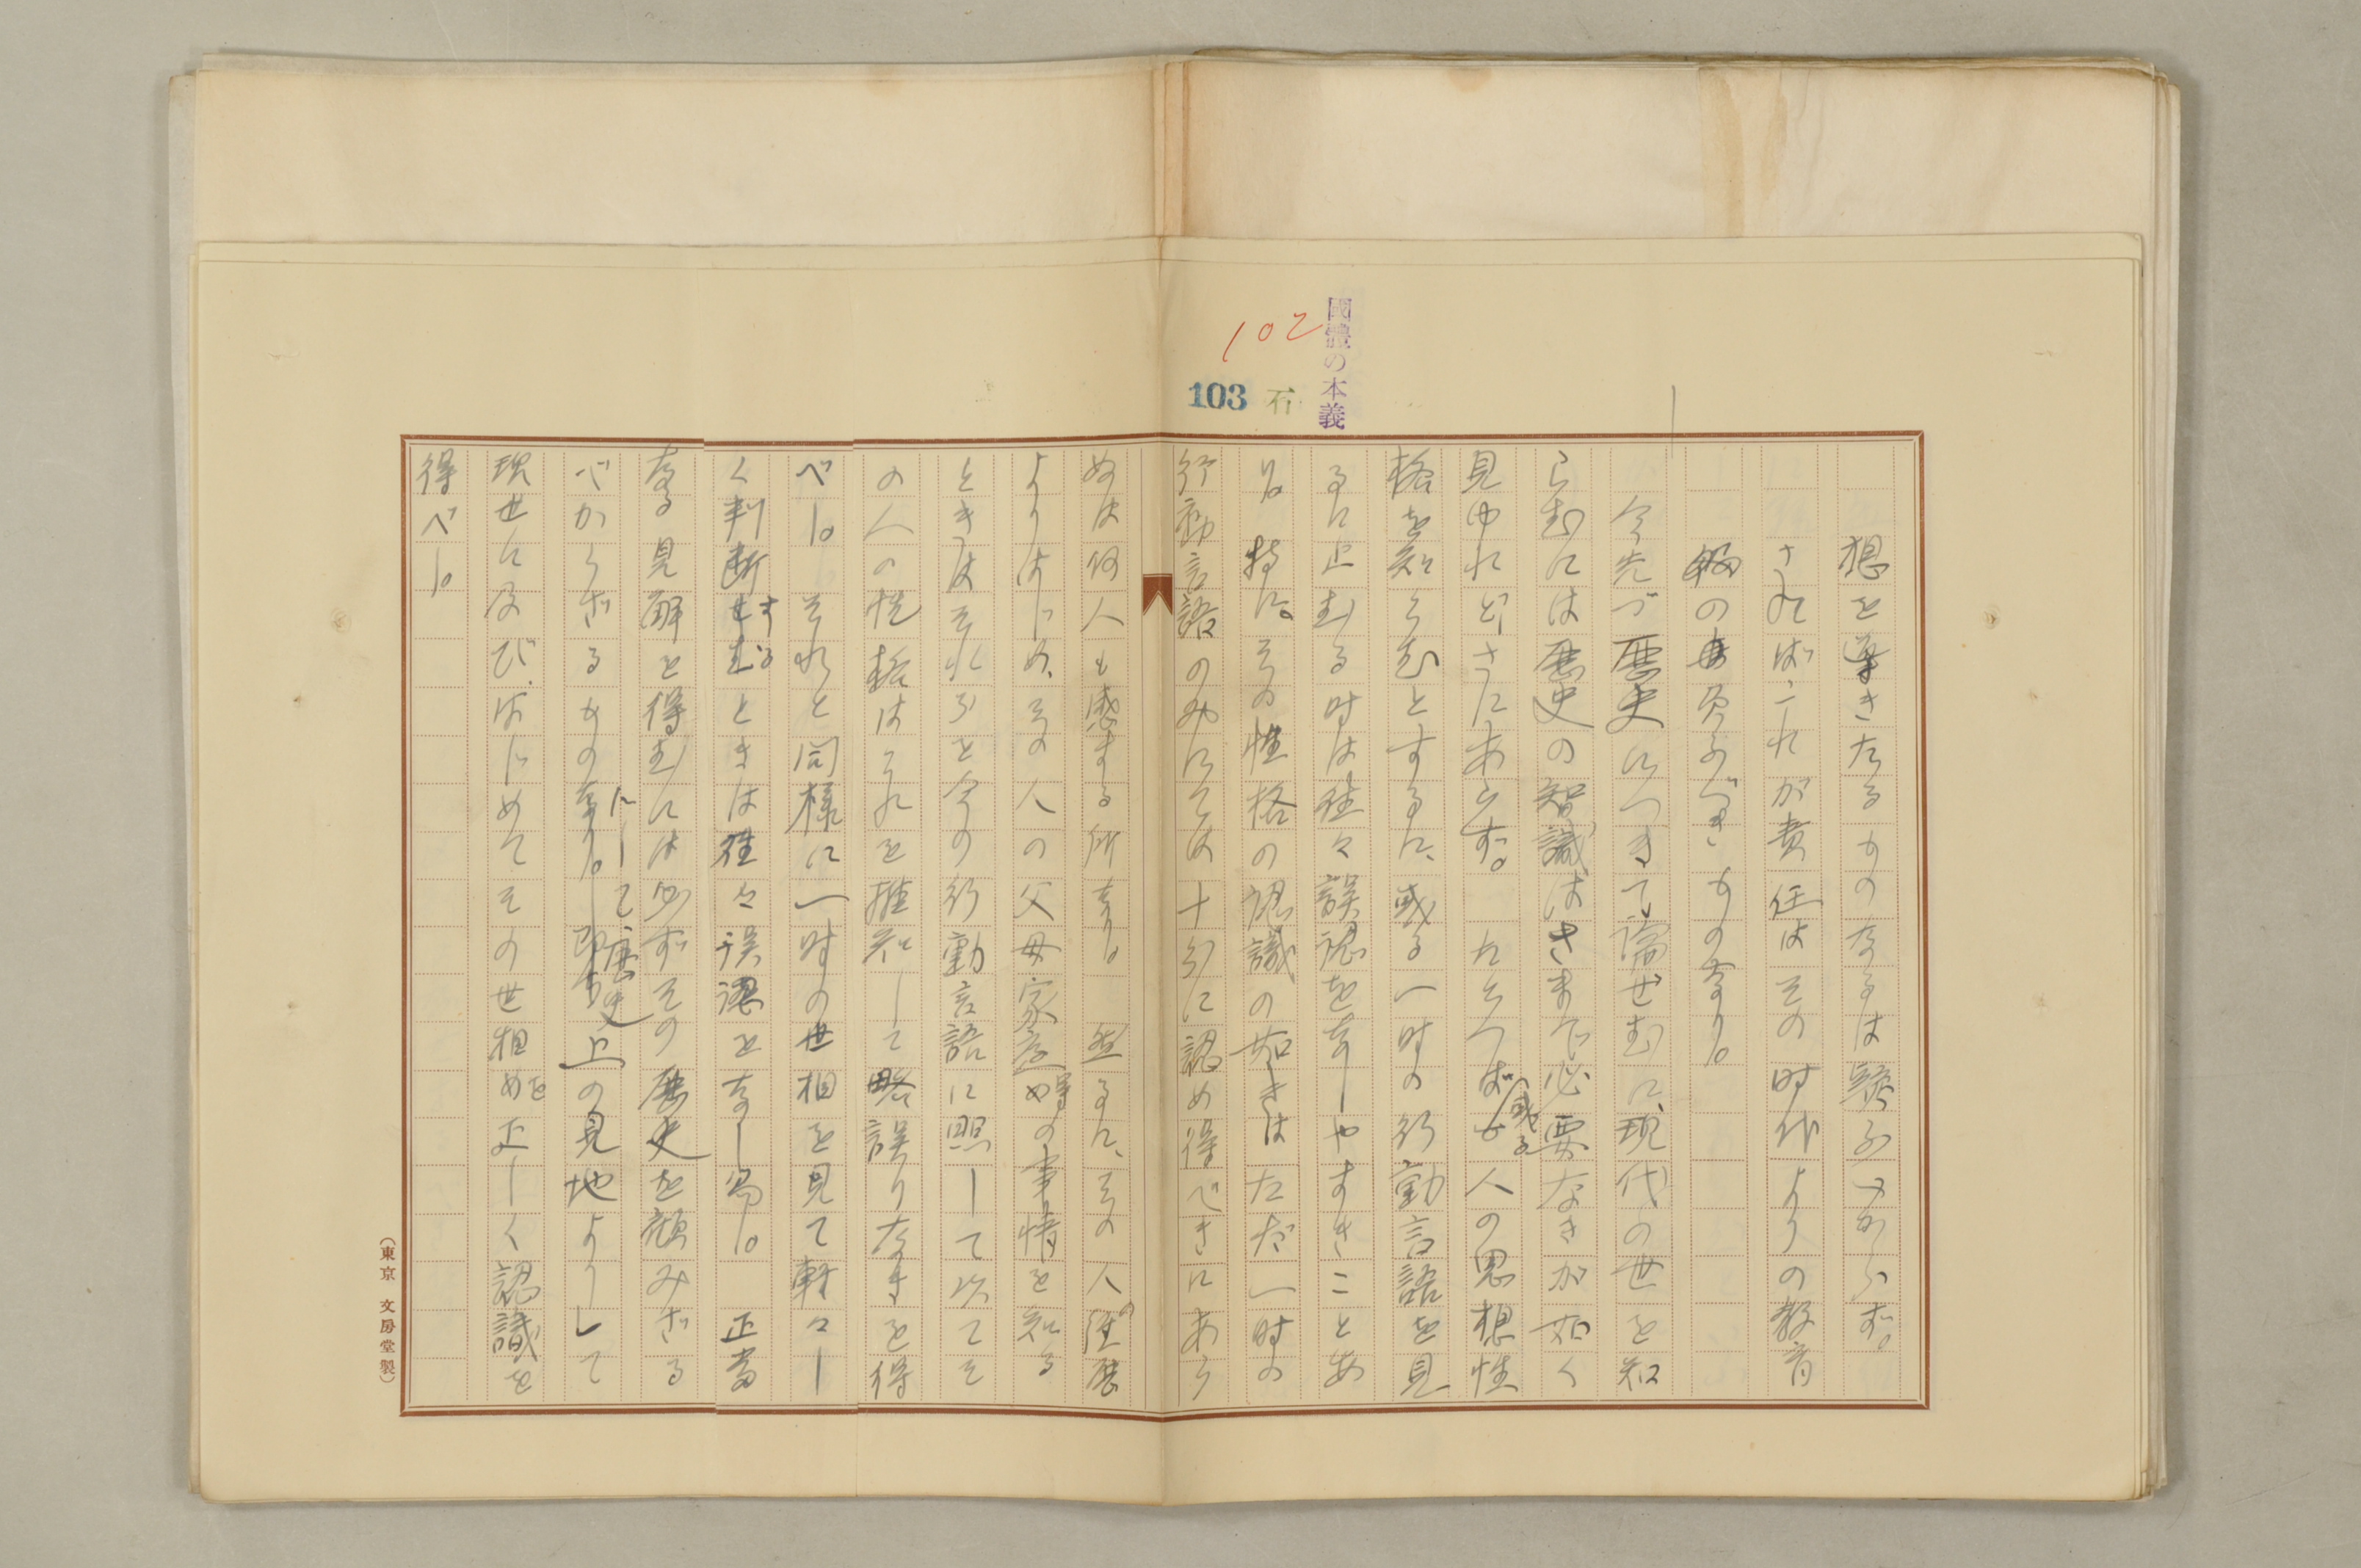 國體の本義
102
103 石
想を導きたるものなるは疑ふべからず。
さればこれが責任はその時代よりの教育
の負ふべきものなり。
今先づ歴史につきて論ぜむに、現代の世を知
らむには歴史の智識はさまで必要なきが如く
見ゆれどさにあらず。たとへば或る人の思想性
格を知らむとするに、或る一時の行動言語を見
るに止むる時は往々誤認を為しやすきことあ
り。特に。その性格の認識の如きはただ一時の
行動言語のみにては十分に認め得べきにあら
ぬは何人も感ずる所なり。然るに、その人の経歴
よりはじめ、その人の父母家庭等の事情を知る
ときはそれらを今の行動言語に照して以てそ
の人の性格はこれを推知して略誤りなきを得
べし。それと同様に一時の世相を見て軽々し
く判断するときは往々誤認を為し易し。正當
なる見解を得むには必ずその歴史を顧みざる
べからざるものにして歴史上の見地よりして
現世に及び、はじめてその世相を正しく認識を
得べし。
(東京 文房堂製)